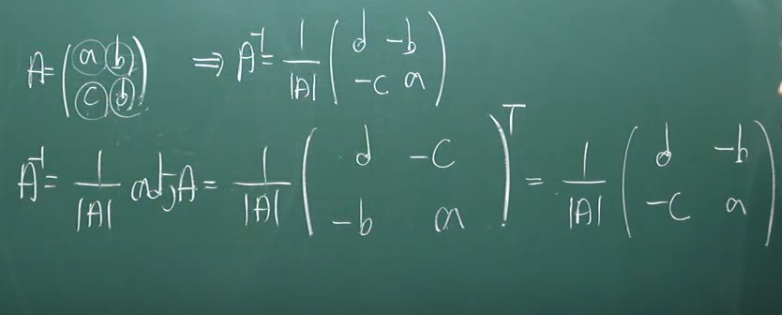 A = ( a b ; c d ) ⇒ A⁻¹ = 1/|A| ( d -b ; -c a )
A⁻¹ = 1/|A| adjA = 1/|A| ( d -c ; -b a )ᵀ = 1/|A| ( d -b ; -c a )